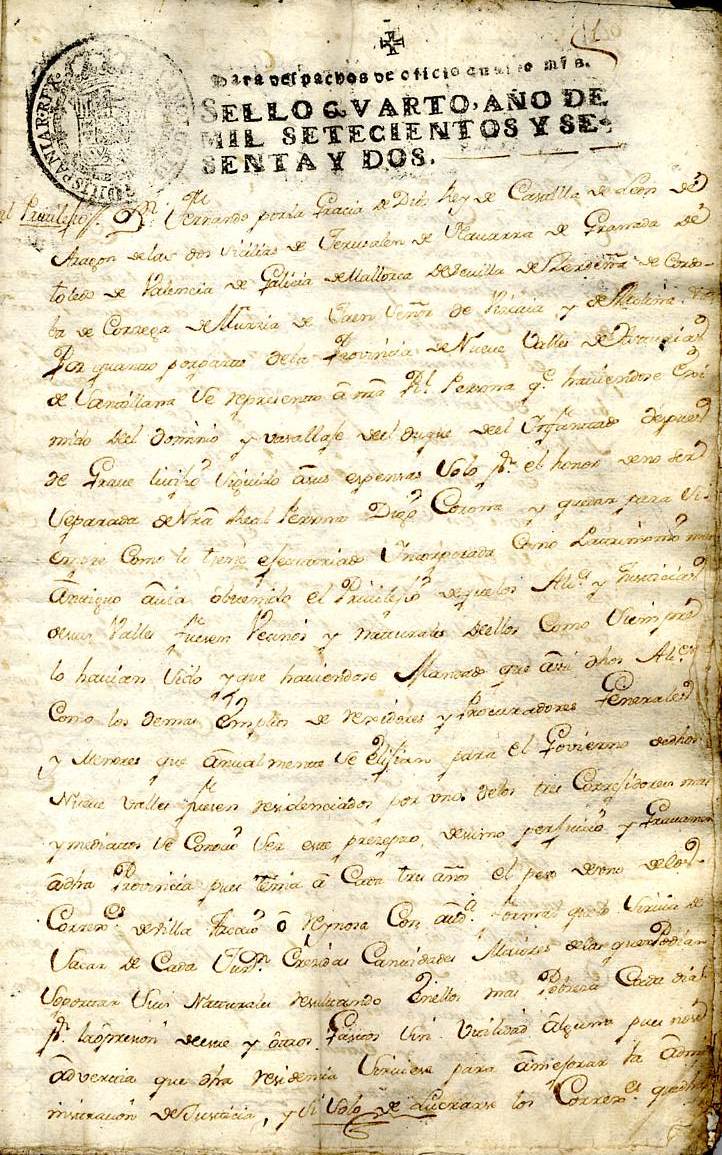 Para despachos de oficio quatro mrs.
SELLO QVARTO, AÑO DE
MIL SETECIENTOS Y SE-
SENTA Y DOS.
HISPANIAR·REX
Privilegio Dn Fernando por la Gracia de Dios Rey de Casttilla de Leon de
Aragon delas dos Sicilias de Jerusalen de Navarra de Granada de
toledo de Valencia de Galicia de Mallorca de Sevilla de Zerdeña de Cordo-
ba de Correga de Murzia de Jaen Señor de Vizcaia y de Molina
Por quanto por parte de la Provincia de Nueve Valles de Asturias
de Santillana se represento â mi Rl Persona qe haviendose exi
mido del dominio y vasallaje del duque del Infantado despues
de Grave litixio seguido âsus espensas Solo pr el honor de no ser
Separada de Nra Real Persona Corona y quedar para si-
empre como lo tiene executoriado Incorporada como Patrimonio mas
Antiguo avia obtenido el Privilexio de que los Alcs y Justicias
de sus Valles fuesen Vecinos y naturales de ellos como siempre
lo havian sido y que haviendose Mandado que assi dhos Alcs
Como los demas Emplios de rexidores y Procuradores Generales
y Menores que Anualmente se elijian para el Govierno de dhos
Nueve Valles fuesen residenciados por uno delos tres Correjidores mas
ymediatos se conocio ser este prezepto, de sumo perjuicio y Gravamen
âdha Provincia pues tenia â Cada tres años el peso de uno de los
Corrers de Villa o Reynosa Con auda formal que
Sacar de Cada Jurn Crezidas Cantidades Maiores delas que podian
Soportar sus Naturales resultando En ellos mas Pobreza Cada dia
pr la opresion de este y otros Gastos sin Utilidad Alguna pues no se
advertia que dha residenzia Sirviese para âmejorar la Admi
nistracion de Justicia, y si Solo de Lucrarse los Corrers